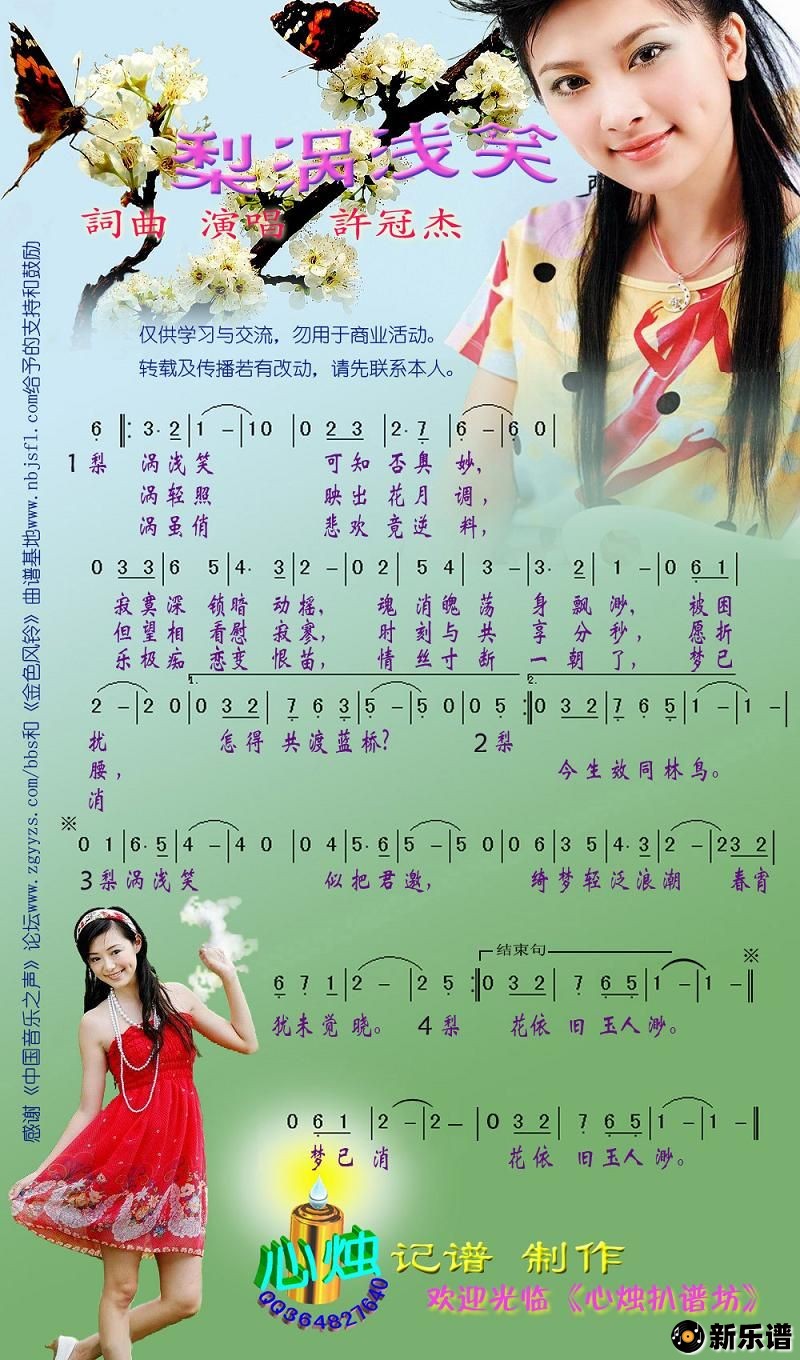 梨涡浅笑
詞曲 演唱 許冠杰
仅供学习与交流，勿用于商业活动。
转载及传播若有改动，请先联系本人。
感谢《中国音乐之声》论坛www.zgyyzs.com/bbs和《金色风铃》曲谱基地www.nbjsfl.com给予的支持和鼓励
6 ‖: 3· 2 | 1 - | 1 0 | 0 2 3 | 2· 7 | 6 - | 6 0 |
1梨 涡浅笑 可知否奥妙，
涡轻照 映出花月调，
涡虽俏 悲欢竟逆料，
0 3 3 | 6 5 | 4· 3 | 2 - | 0 2 | 5 4 | 3 - | 3· 2 | 1 - | 0 6 1 |
寂寞深锁暗动摇， 魂消魄荡身飘渺， 被困
但望相看慰寂寥， 时刻与共享分秒， 愿折
乐极痴恋变恨苗， 情丝寸断一朝了， 梦已
1.
2.
2 - | 2 0 | 0 3 2 | 7 6 3 | 5 - | 5 0 | 0 5 :‖ 0 3 2 | 7 6 5 | 1 - | 1 - |
扰 怎得共渡蓝桥？ 2梨
腰， 今生效同林鸟。
消
※
0 1 | 6· 5 | 4 - | 4 0 | 0 4 | 5· 6 | 5 - | 5 0 | 0 6 | 3 5 | 4· 3 | 2 - | 2 3 2 |
3梨涡浅笑 似把君邀， 绮梦轻泛浪潮 春宵
结束句
※
6 7 1 | 2 - | 2 5 :‖ 0 3 2 | 7 6 5 | 1 - | 1 - ‖
犹未觉晓。 4梨 花依旧玉人渺。
0 6 1 | 2 - | 2 — | 0 3 2 | 7 6 5 | 1 - | 1 - ‖
梦已消 花依旧玉人渺。
心烛 记谱 制作
QQ364827640
欢迎光临《心烛扒谱坊》
新乐谱